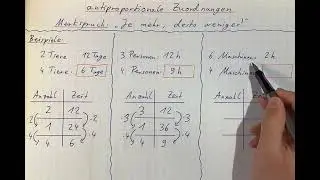 antiproportionale Zuordnungen
Merkspruch: „Je mehr, desto weniger!"
Beispiele:
2 Tiere 12 Tage
4 Tiere: 6 Tage
Anzahl Zeit
2 12
1 24
4 6
:2 ·2
·4 :4
3 Personen: 12 h
4 Personen: 9 h
Anzahl Zeit
3 12
1 36
4 9
:3 ·3
·4 :4
6 Maschinen: 2 h
4 Maschinen
Anzahl Zeit